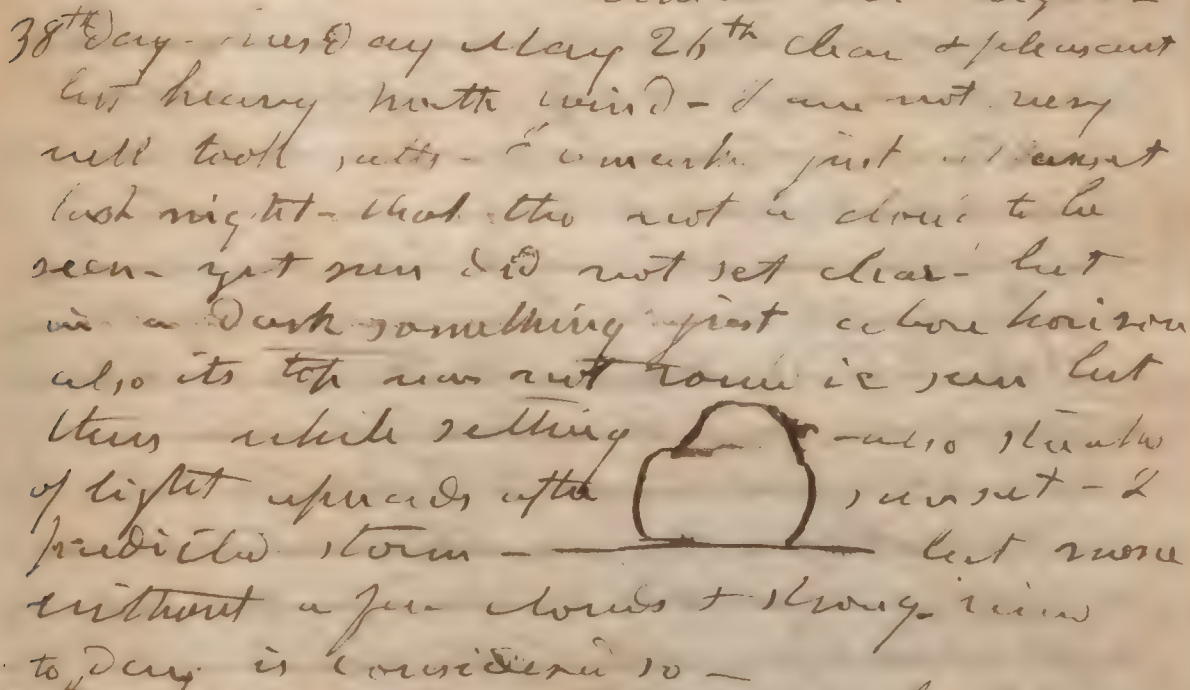 38th Day - Tuesday May 26th clear & pleasant
but heavy north wind - I am not very
well took salts - I remark just at sunset
last night - that tho not a cloud to be
seen - yet sun did not set clear - but
in a dark something just above horison
also its top was not round ie sun but
thus while setting - also streaks
of light upwards after sunset - I
predicted storm - but none
without a few clouds + strong wind
to day is considered so -